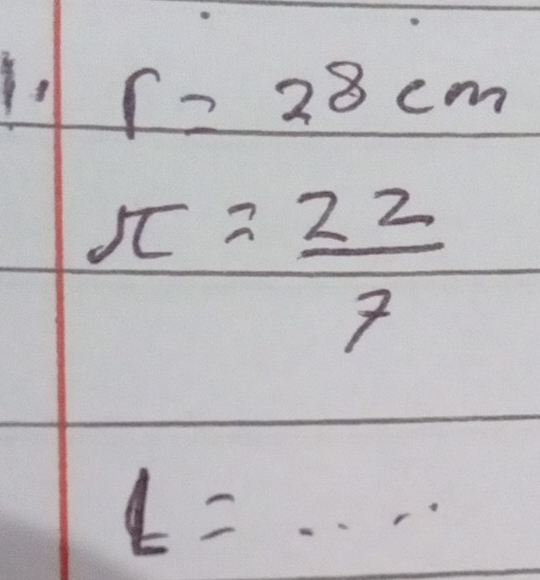 1. r = 28 cm
π = 22/7
L = .....